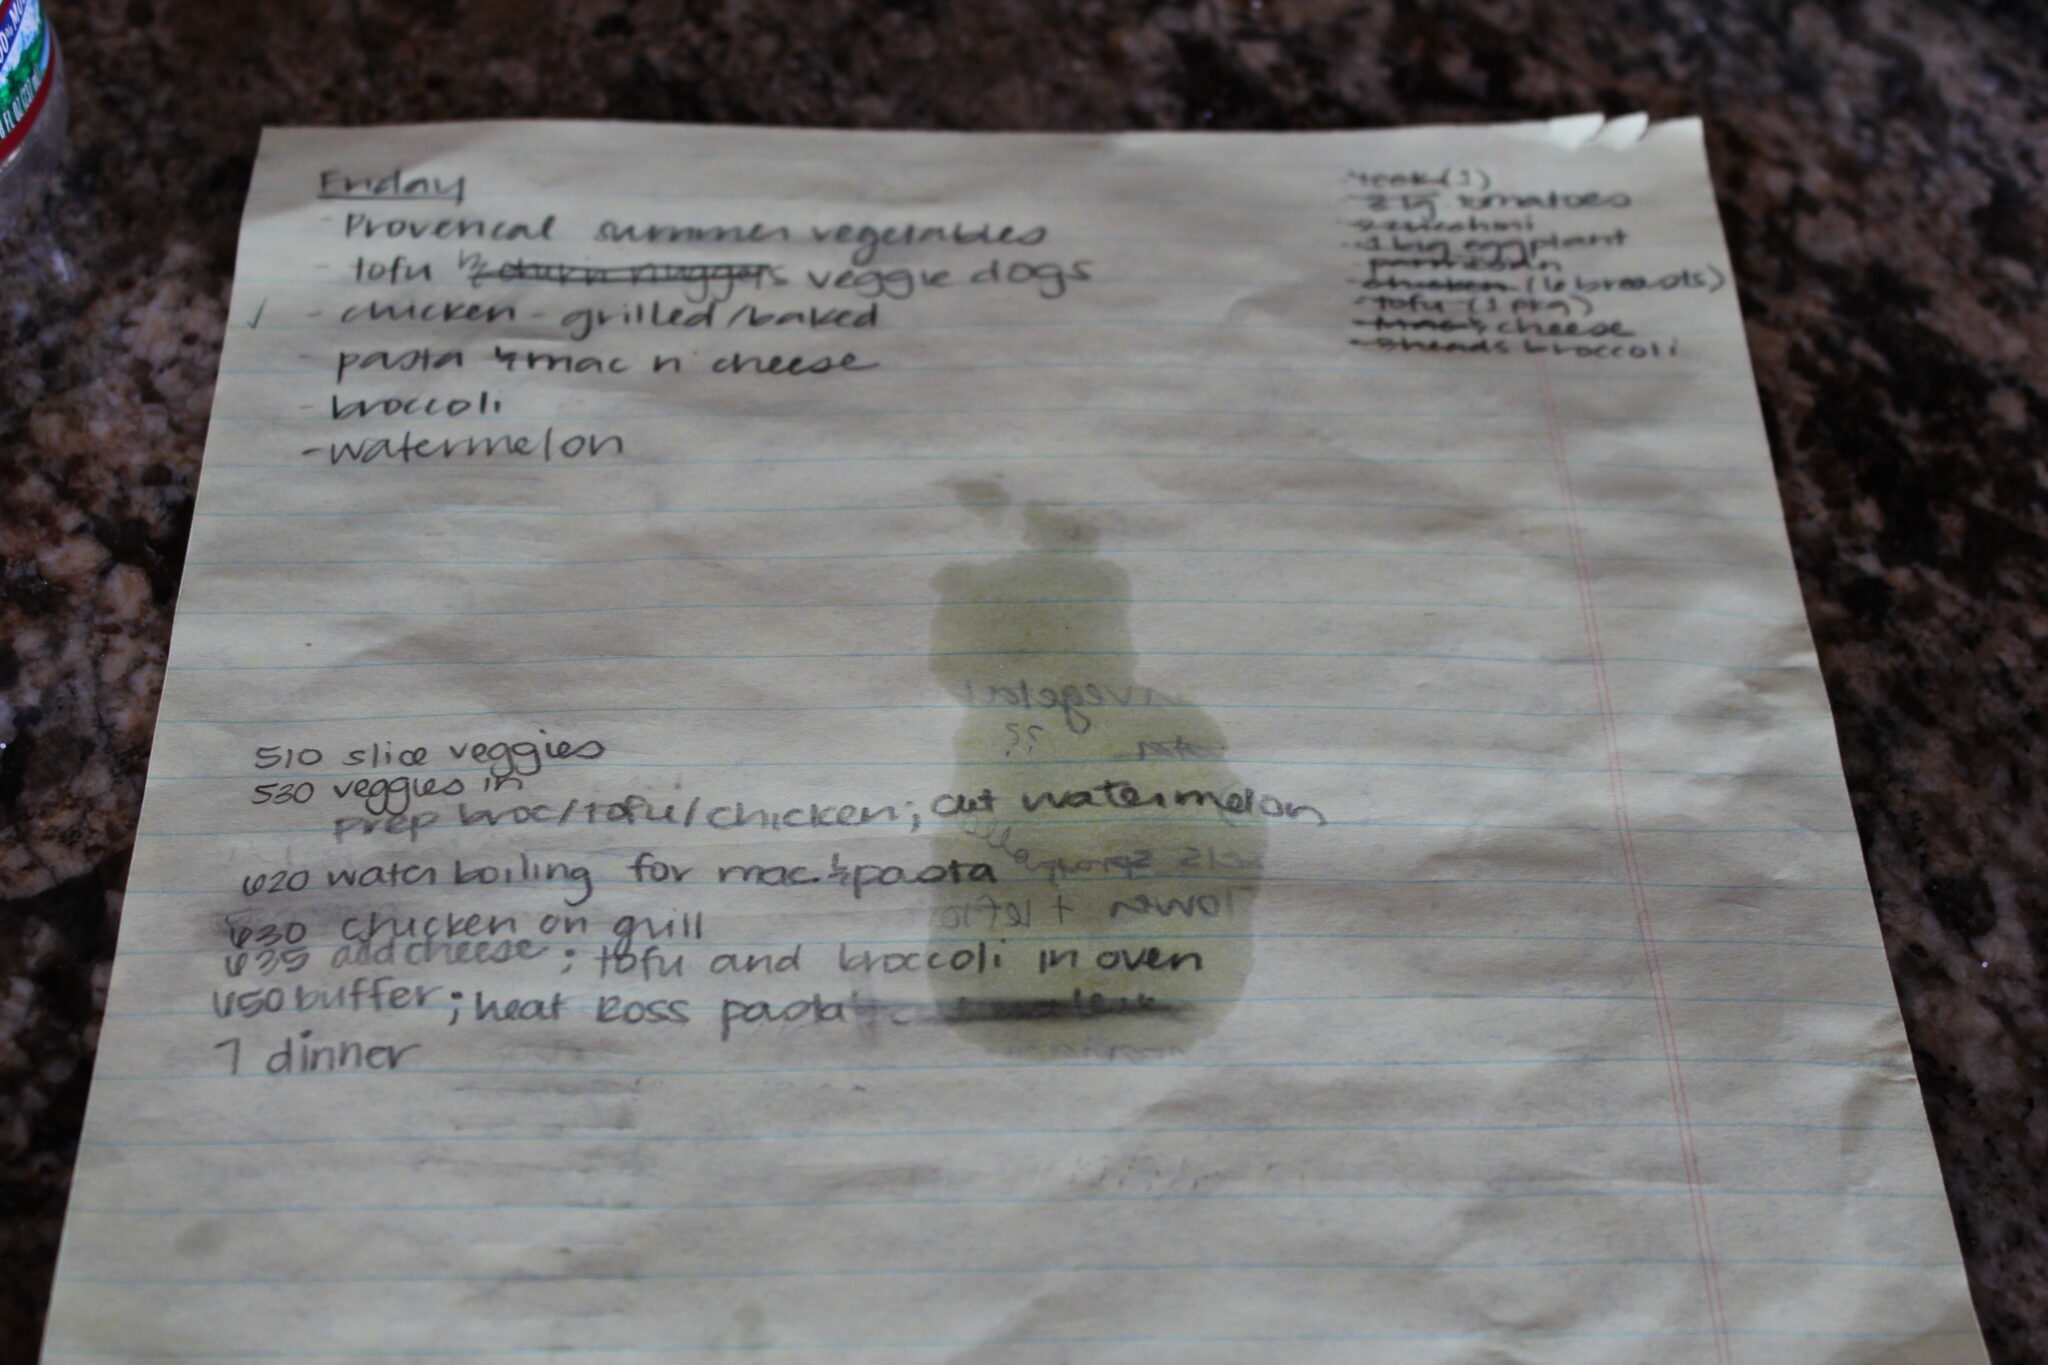 Friday
- Provencal summer vegetables
- tofu & veggie dogs
✓ - chicken - grilled/baked
- pasta & mac n cheese
- broccoli
- watermelon
leek (1)
2 lg tomatoes
2 zucchini
1 big eggplant
parmesan
chicken (6 breasts)
tofu (1 pkg)
mac & cheese
3 heads broccoli
510 slice veggies
530 veggies in
prep broc/tofu/chicken; cut watermelon
620 water boiling for mac & pasta
630 chicken on grill
635 add cheese; tofu and broccoli in oven
650 buffer; heat Ross pasta
7 dinner
FL OZ (237 mL)